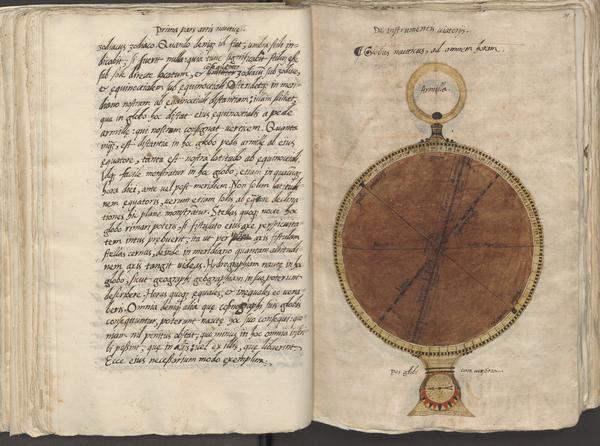 Prima pars artis nauticę.
zodiacus zodiaco. Quando deniq; id fiet; umbra stili in-
dicabit; si fuerit nulla: quia tunc significabit stilum esse
sub sole directe locatum, & zodiacum sub zodiaco,
& equinoctialem sub equinoctiali. Ostendetq; in meri-
diano nostram ab equinoctiali distantiam; nam scilicet,
qua in globo hoc distat eius equinoctialis a pede
armillę: qui nostrum consignat verticem. Quanta
inq; est distantia in hoc globo pedis armillę ab eius
equatore, tanta est nostra latitudo ab equinoctiali.
Idq; facile monstratur in hoc globo, etiam in quacuq;
hora diei, ante vel post meridiem. Non solum latitudi
nem equatoris, verum etiam solis ab eodem declina-
tiones hic plane monstratur. Stellas quoq; nocte hoc
globo rimari poteris, si fistulato eius axe perspicuita-
tem intus prębuerit: ita ut per axis fistulam
stellas cernas, deinde in meridiano quantam altitudi
nem axis tangit videas. Hydrographiam nautę in hoc
globo, sicut geographi geographiam in suo, poterunt
describere. Horas quoq; equales, & inequales eo vena
beris. Omnia deniq; alia que cosmographi suis globis
consequuntur, poterunt nautę hoc suo consequi: quo
niam nil penitus obstat, quo minus in hoc omnia inscri
bi possint; que in aliis: vel ex illis, que libuerint.
Ecce eius necessarium modo exemplum.
De instrumentis viatoris.
¶ Globus nauticus, ad omnem horam.
Armilla.
Pes globi
cum umbra